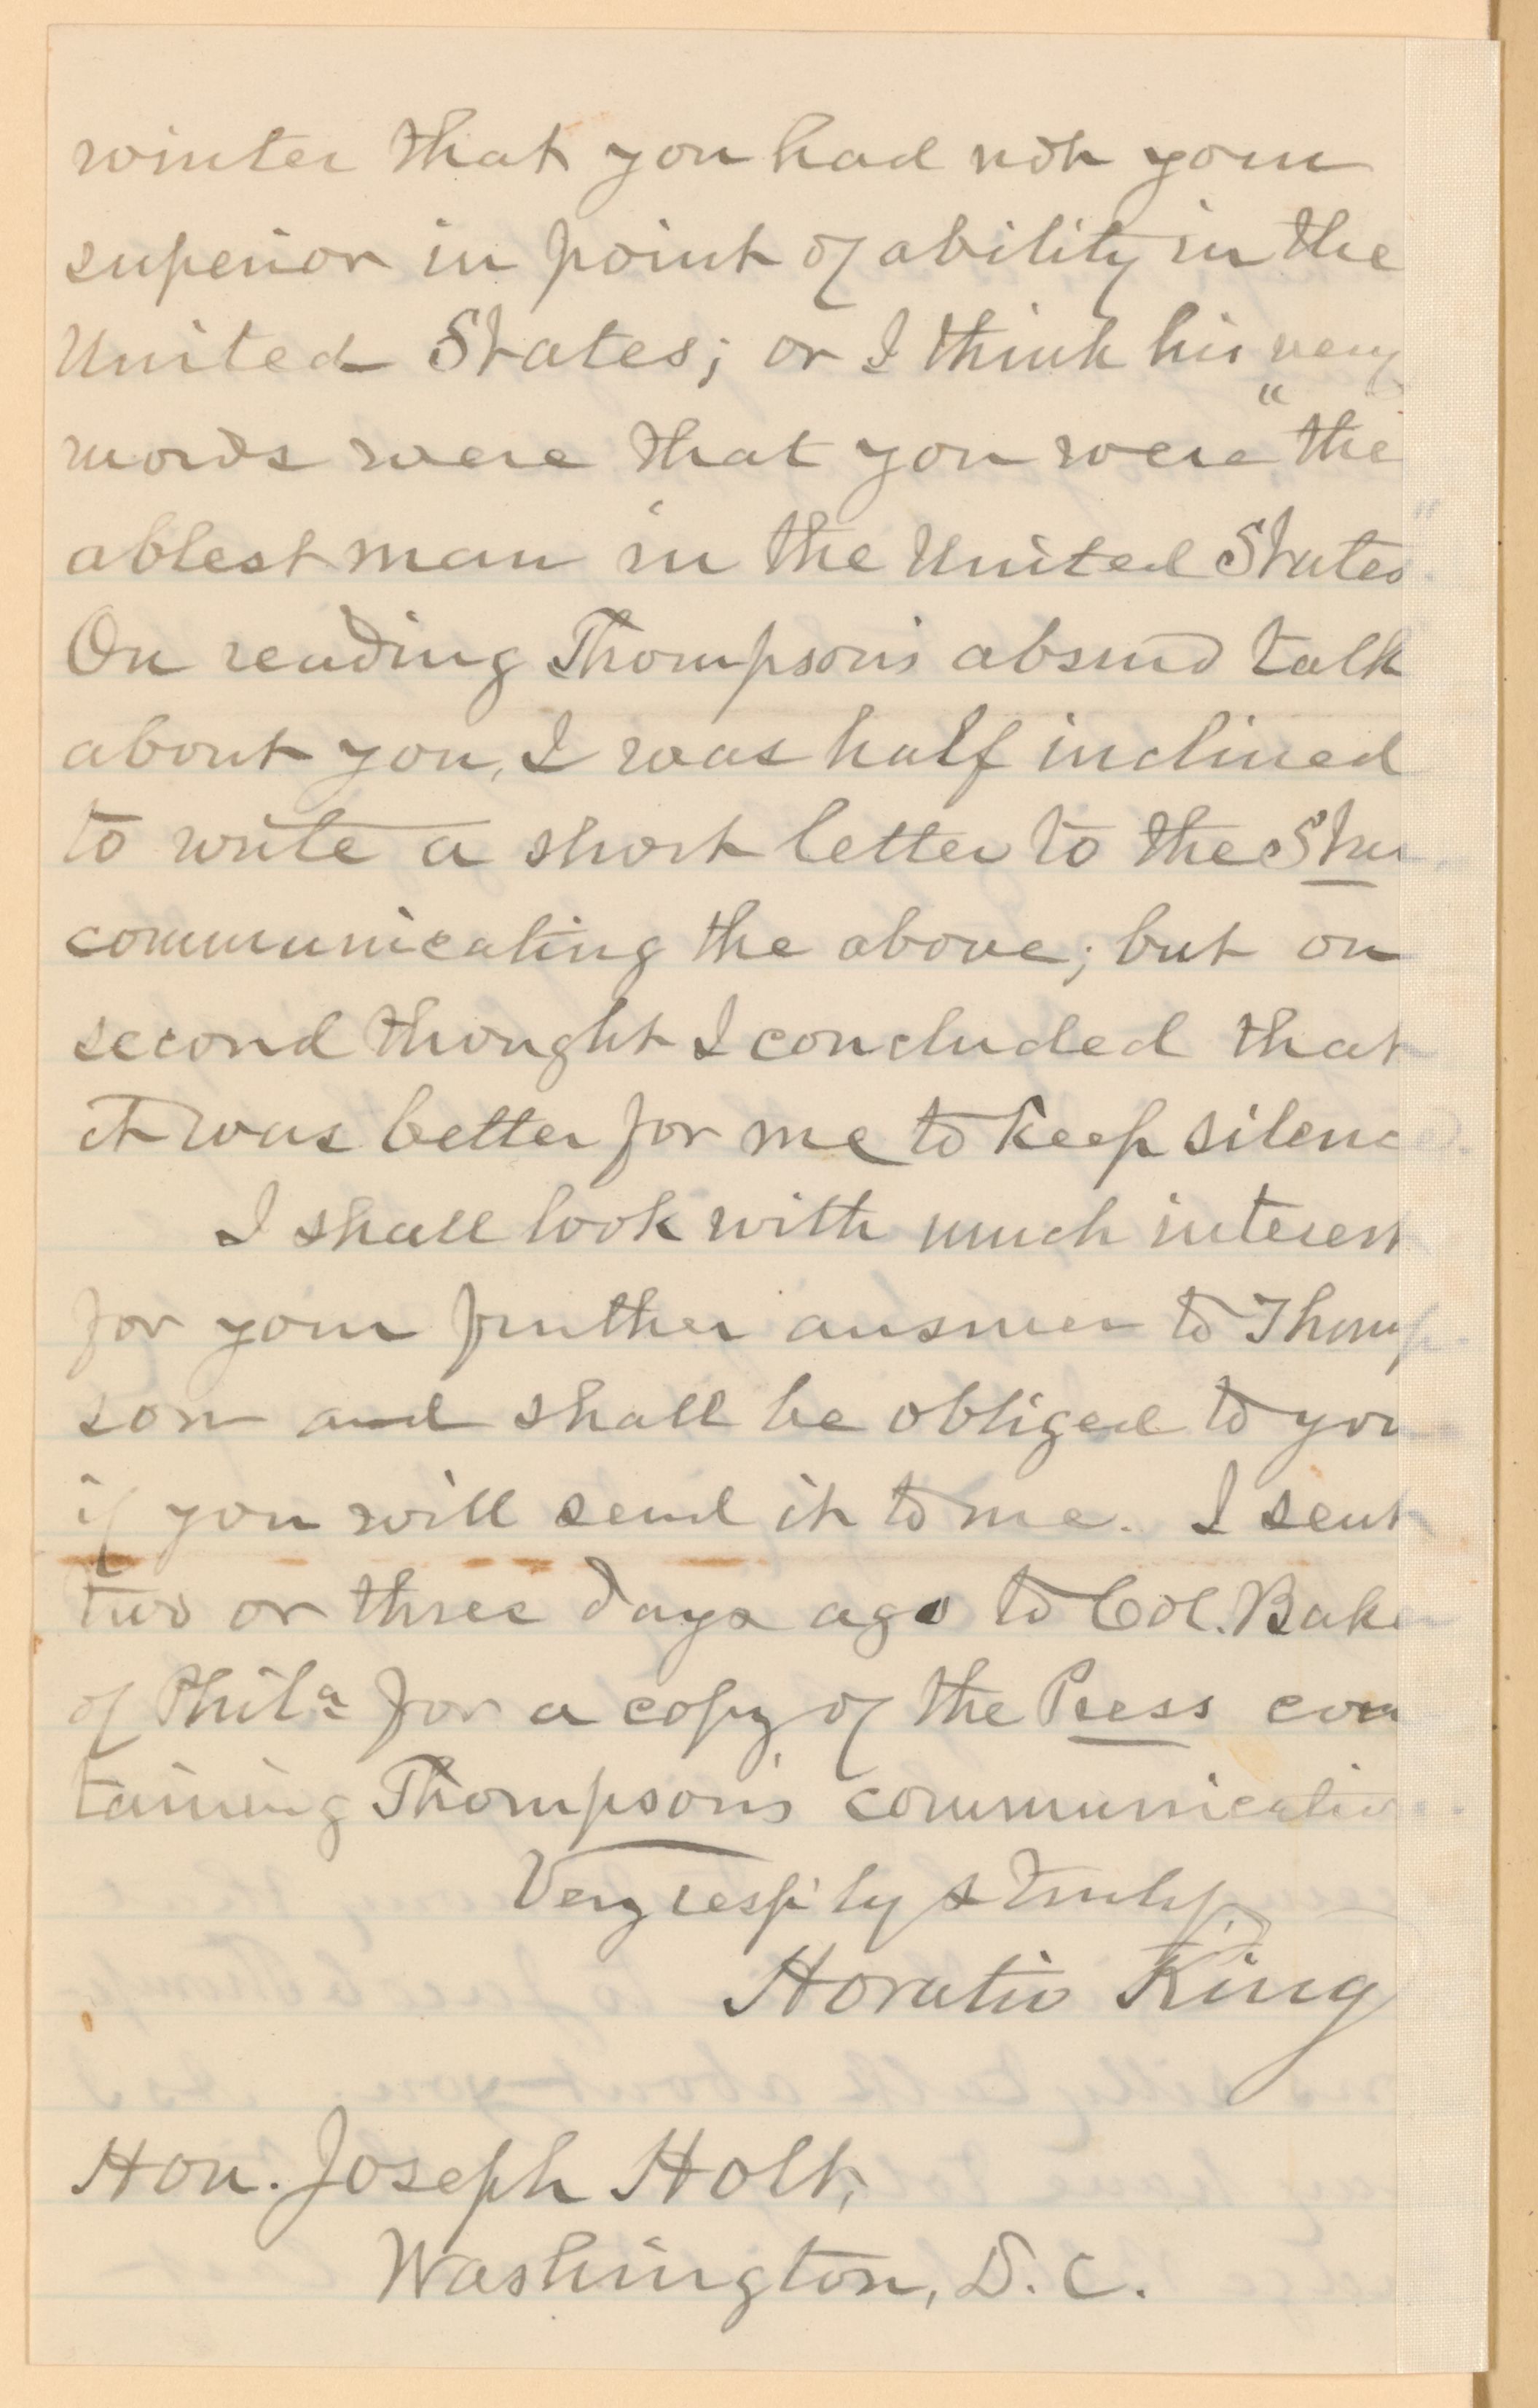 winter that you had not your
superior in point of ability in the
United States; or I think his very
words were that you were "the
ablest man in the United States."
On reading Thompson's absurd talk
about you, I was half inclined
to write a short letter to the Star
communicating the above; but on
second thought I concluded that
it was better for me to keep silence.
I shall look with much interest
for your further answer to Thomp-
son and shall be obliged to you
if you will send it to me. I sent
two or three days ago to Col. Baker
of Phila for a copy of the Press con
taining Thompson's communication.
Very resp'ly & truly,
Horatio King
Hon. Joseph Holt,
Washington, D.C.